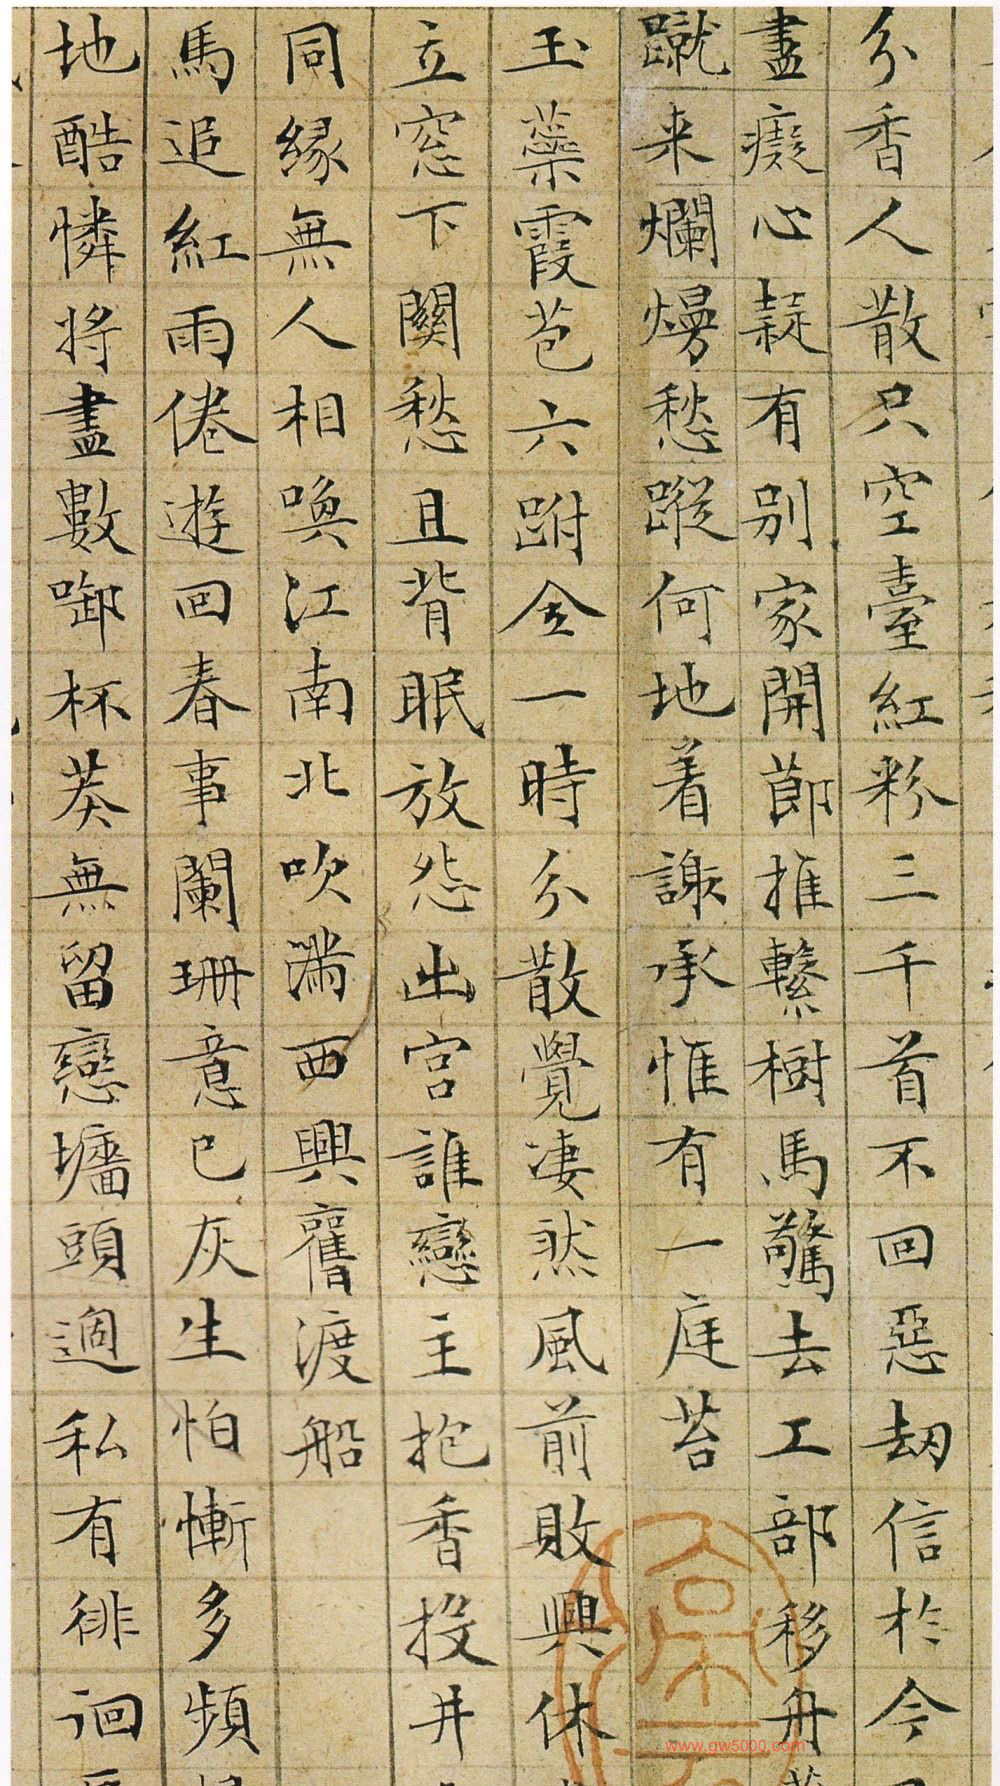 分香人散只空臺紅粉三千首不回惡劫信於今
盡癡心疑有別家開節推繫樹馬驚去工部移舟
蹴来爛熳愁蹤何地着謝承惟有一庭苔
玉蘂霞苞六跗全一時分散覺凄然風前敗興休
立窓下關愁且背眠放怨出宮誰戀主抱香投井
同緣無人相喚江南北吹滿西興舊渡船
馬追紅雨倦遊回春事闌珊意已灰生怕慚多頻
地酷憐將盡數啣杯莫無留戀墻頭過私有徘徊
www.gw5000.com